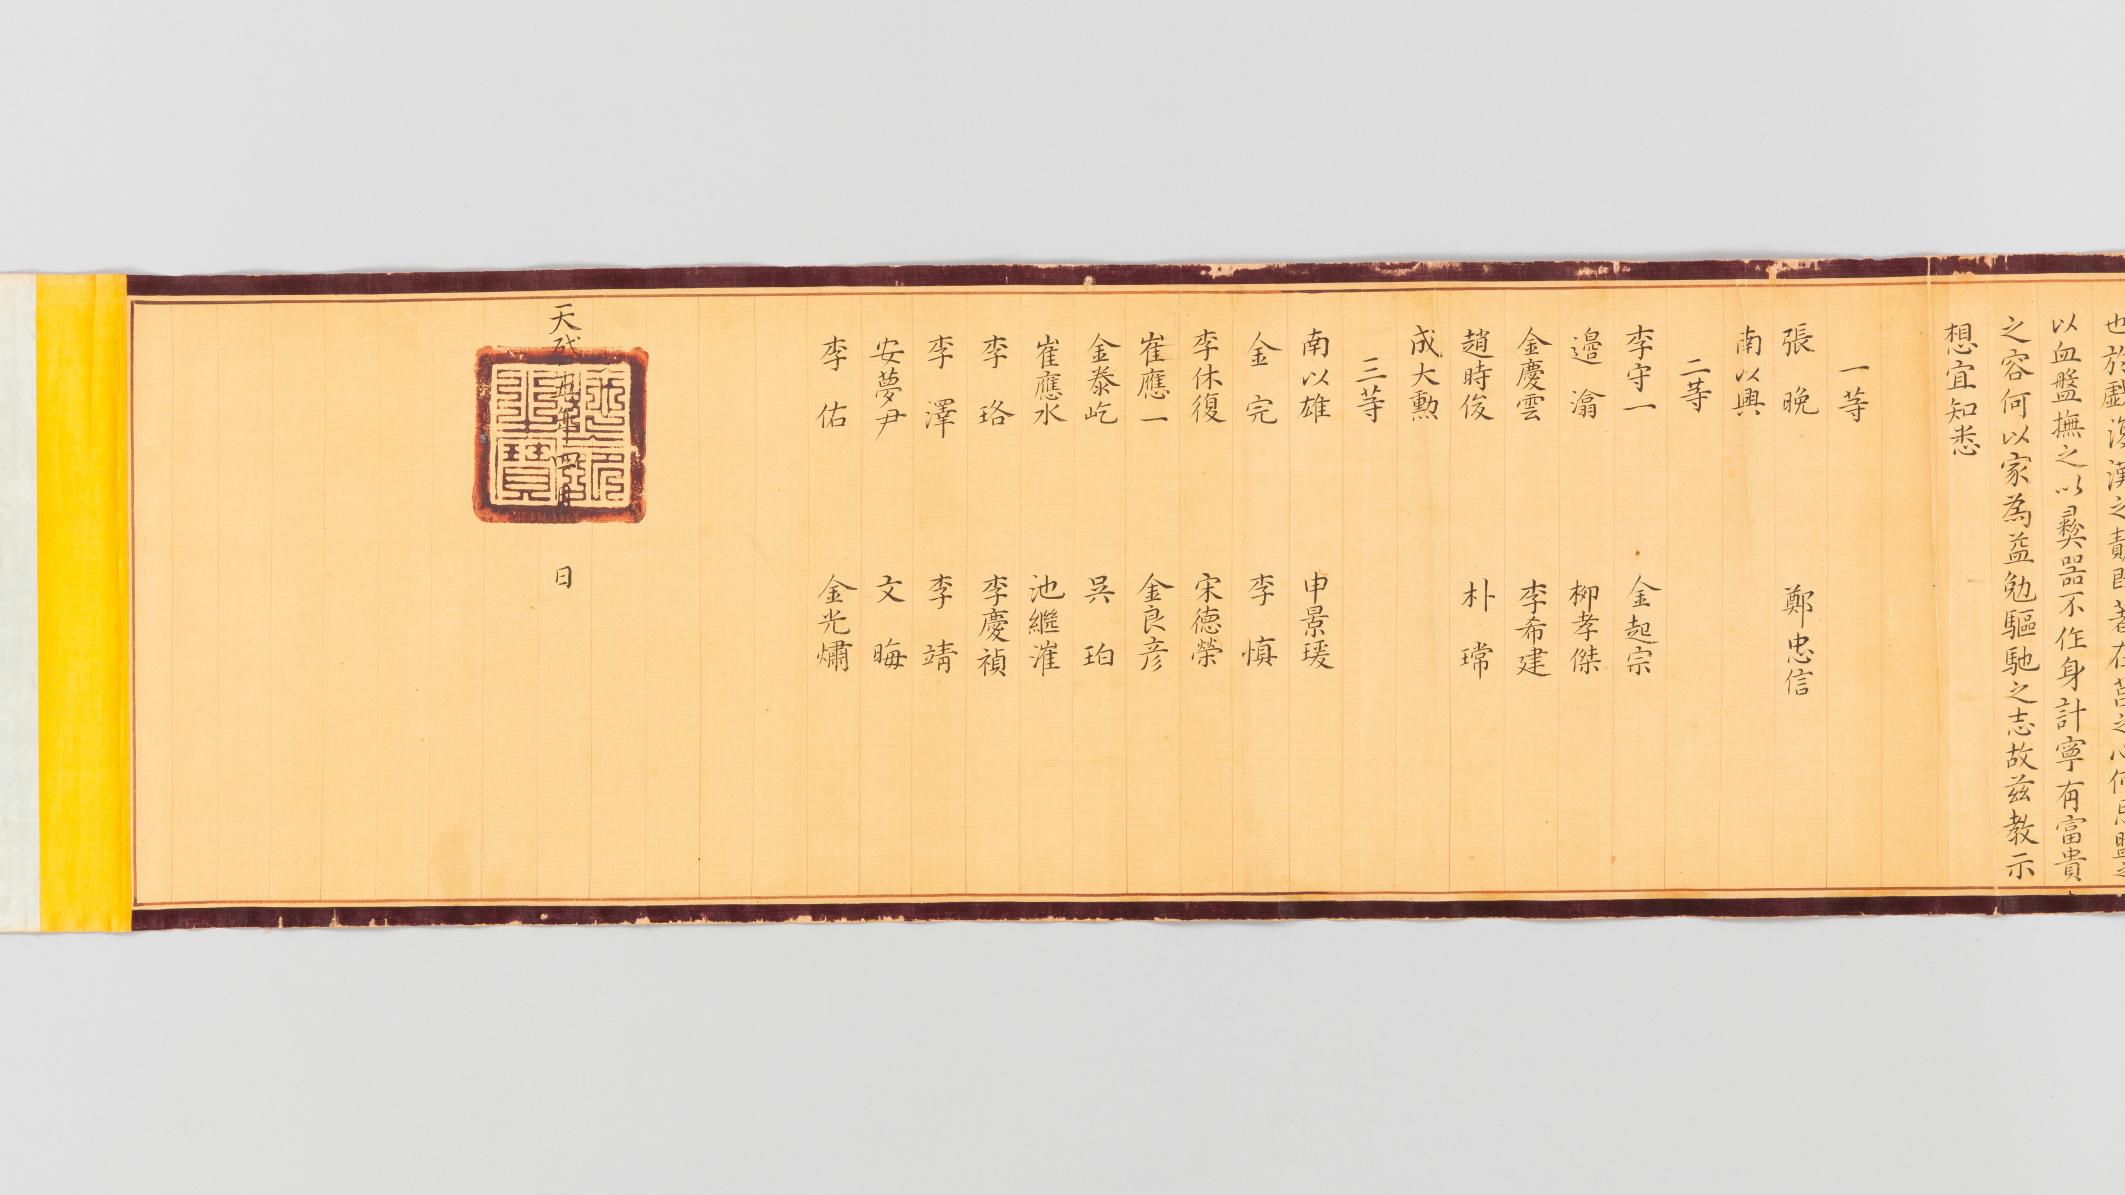 以血盤撫之以彛器不作身計寧有富貴
之容何以家為益勉驅馳之志故玆教示
想宜知悉
一等
張晩 鄭忠信
南以興
二等
李守一 金起宗
邊潝 柳孝傑
金慶雲 李希建
趙時俊 朴瑺
成大勲
三等
南以雄 申景瑗
金完 李慎
李休復 宋德榮
崔應一 金良彦
金泰屹 吳珀
崔應水 池繼漼
李珞 李慶禎
李澤 李靖
安夢尹 文晦
李佑 金光熽
天啓五年四月 日